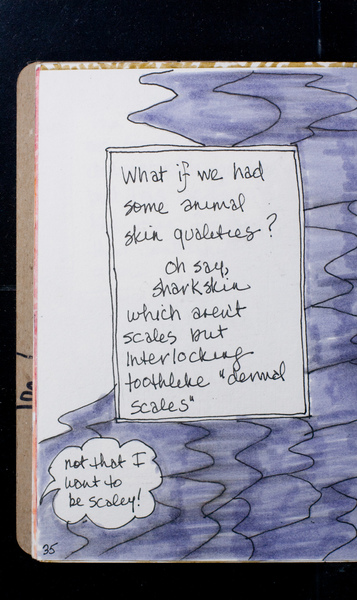 What if we had
some animal
skin qualities?
oh say,
sharkskin
which aren't
scales but
Interlocking
toothlike "dermal
scales"
not that I
want to
be scaley!
35